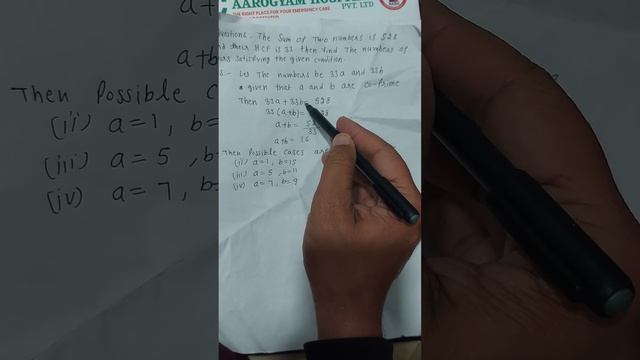 AAROGYAM HOSPITAL
PVT. LTD
THE RIGHT PLACE FOR YOUR EMERGENCY CARE
The Sum of Two numbers is 528
their HCF is 33 then find The numbers of
satisfying the given condition.
:- Let The numbers be 33a and 33b
* given that a and b are co-Prime
Then 33a + 33b = 528
33 (a+b) =
a+b =
33
a+b = 16
Then Possible cases are
(ii) a=1, b=15
(iii) a=5, b=11
(iv) a=7, b=9
a+b
Then Possible c
(ii) a=1, b=
a=5, b=
(iv) a=7, b